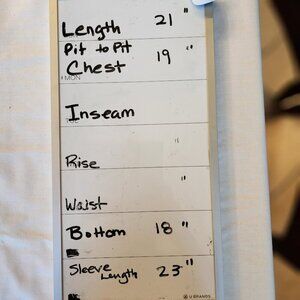 Length 21"
Pit to Pit
Chest 19"
MON
Inseam
TUE
Rise "
Waist "
Bottom 18"
Sleeve
Length 23"
U BRANDS